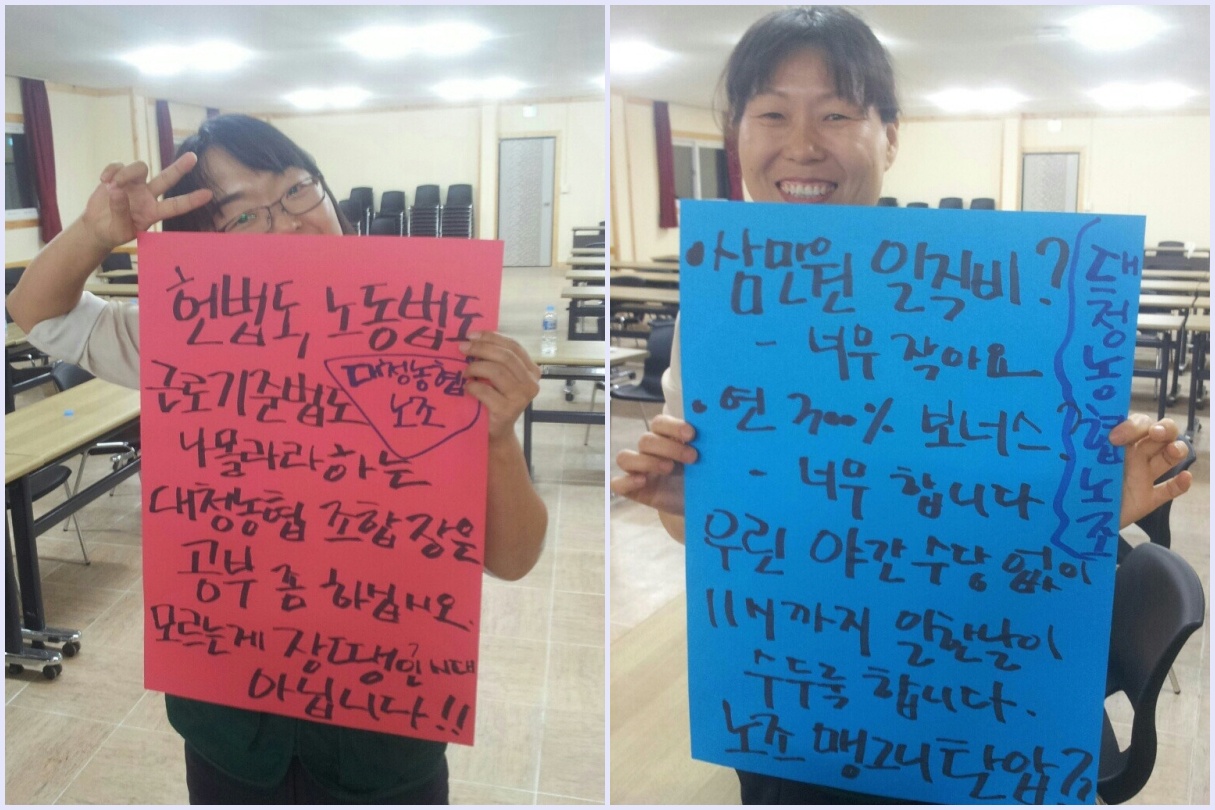 헌법도, 노동법도
근로기준법도
나몰라라하는
대청농협 조합장은
공부 좀 하십시오.
모르는게 장땡인 시대
아닙니다!!
대청농협
노조
•삼만원 일직비?
- 너무 작아요
•연 300% 보너스?
- 너무 합니다
우린 야간수당 없이
11시까지 일한날이
수두룩 합니다.
노조 맹그니 탄압
대청농협노조